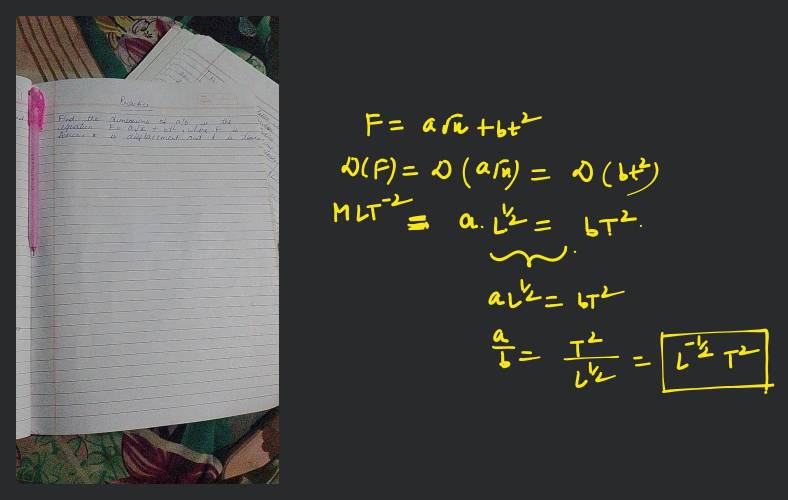 Practice
Find the dimensions of a/b in the
equation F = a√x + bt², where F is
force, x is displacement and t is time
F = a√x + bt²
D(F) = D(a√x) = D(bt²)
MLT⁻² = a. L^½ = bT².
aL^½ = bT²
a/b = T²/L^½ = L^-½ T²